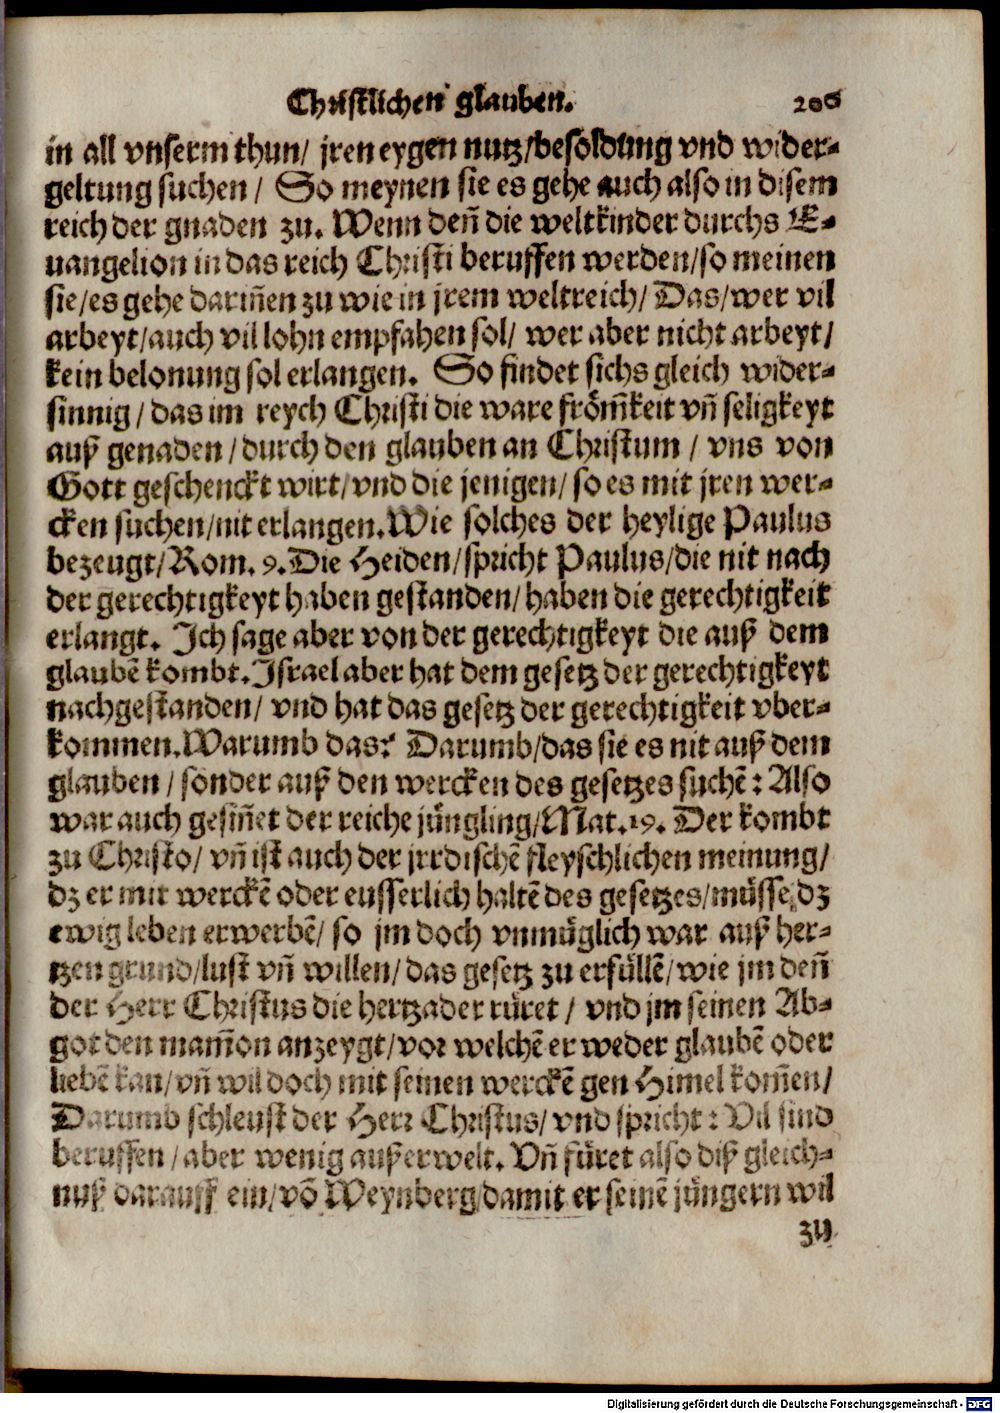 Christlichen glauben. 206
in all vnserm thun/ jren eygen nutz/besoldung vnd wider-
geltung suchen/ So meynen sie es gehe auch also in disem
reich der gnaden zu. Wenn deñ die weltkinder durchs E-
uangelion in das reich Christi beruffen werden/so meinen
sie/es gehe dariñen zu wie in jrem weltreich/ Das/wer vil
arbeyt/auch vil lohn empfahen sol/ wer aber nicht arbeyt/
kein belonung sol erlangen. So findet sichs gleich wider-
sinnig/das im reych Christi die ware frōm̄keit vñ seligkeyt
auß genaden/durch den glauben an Christum/ vns von
Gott geschenckt wirt/vnd die jenigen/so es mit jren wer-
cken suchen/nit erlangen.Wie solches der heylige Paulus
bezeugt/Rom. 9.Die Heiden/spricht Paulus/die nit nach
der gerechtigkeyt haben gestanden/haben die gerechtigkeit
erlangt. Ich sage aber von der gerechtigkeyt die auß dem
glaubē kombt.Israel aber hat dem gesetz der gerechtigkeyt
nachgestanden/ vnd hat das gesetz der gerechtigkeit vber-
kommen.Warumb das? Darumb/das sie es nit auß dem
glauben/sonder auß den wercken des gesetzes suchē: Also
war auch gesiñet der reiche jüngling/Mat.19. Der kombt
zu Christo/ vñ ist auch der jrrdischē fleyschlichen meinung/
dz er mit werckē oder eusserlich haltē des gesetzes/müsse dz
ewig leben erwerbē/ so jm doch vnmüglich war auß her-
tzen grund/lust vñ willen/das gesetz zu erfüllē/wie jm deñ
der Herr Christus die hertzader rüret/ vnd jm seinen Ab-
got den mam̄on anzeygt/vor welchē er weder glaubē oder
liebē kan/vñ wil doch mit seinen werckē gen Himel kom̄en/
Darumb schleust der Herr Christus/ vnd spricht: Vil sind
beruffen/aber wenig außerwelt. Vñ füret also diß gleich-
nuß darauff ein/vō Weynberg/damit er seinē jüngern wil
zu
Digitalisierung gefördert durch die Deutsche Forschungsgemeinschaft - DFG